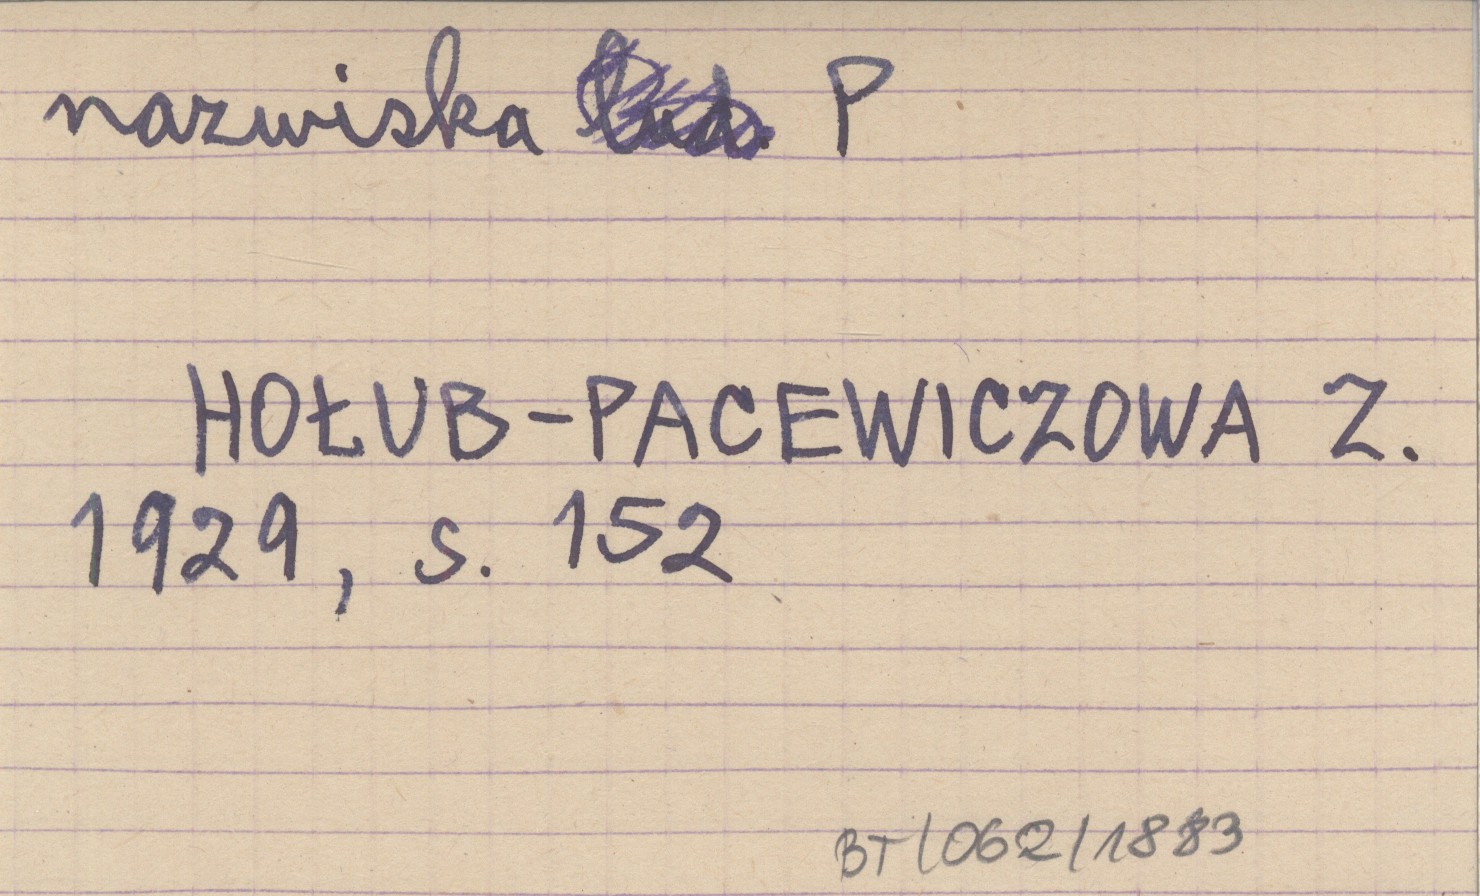 nazwiska P
HOŁUB-PACEWICZOWA Z.
1929, s. 152
BT/062/1883